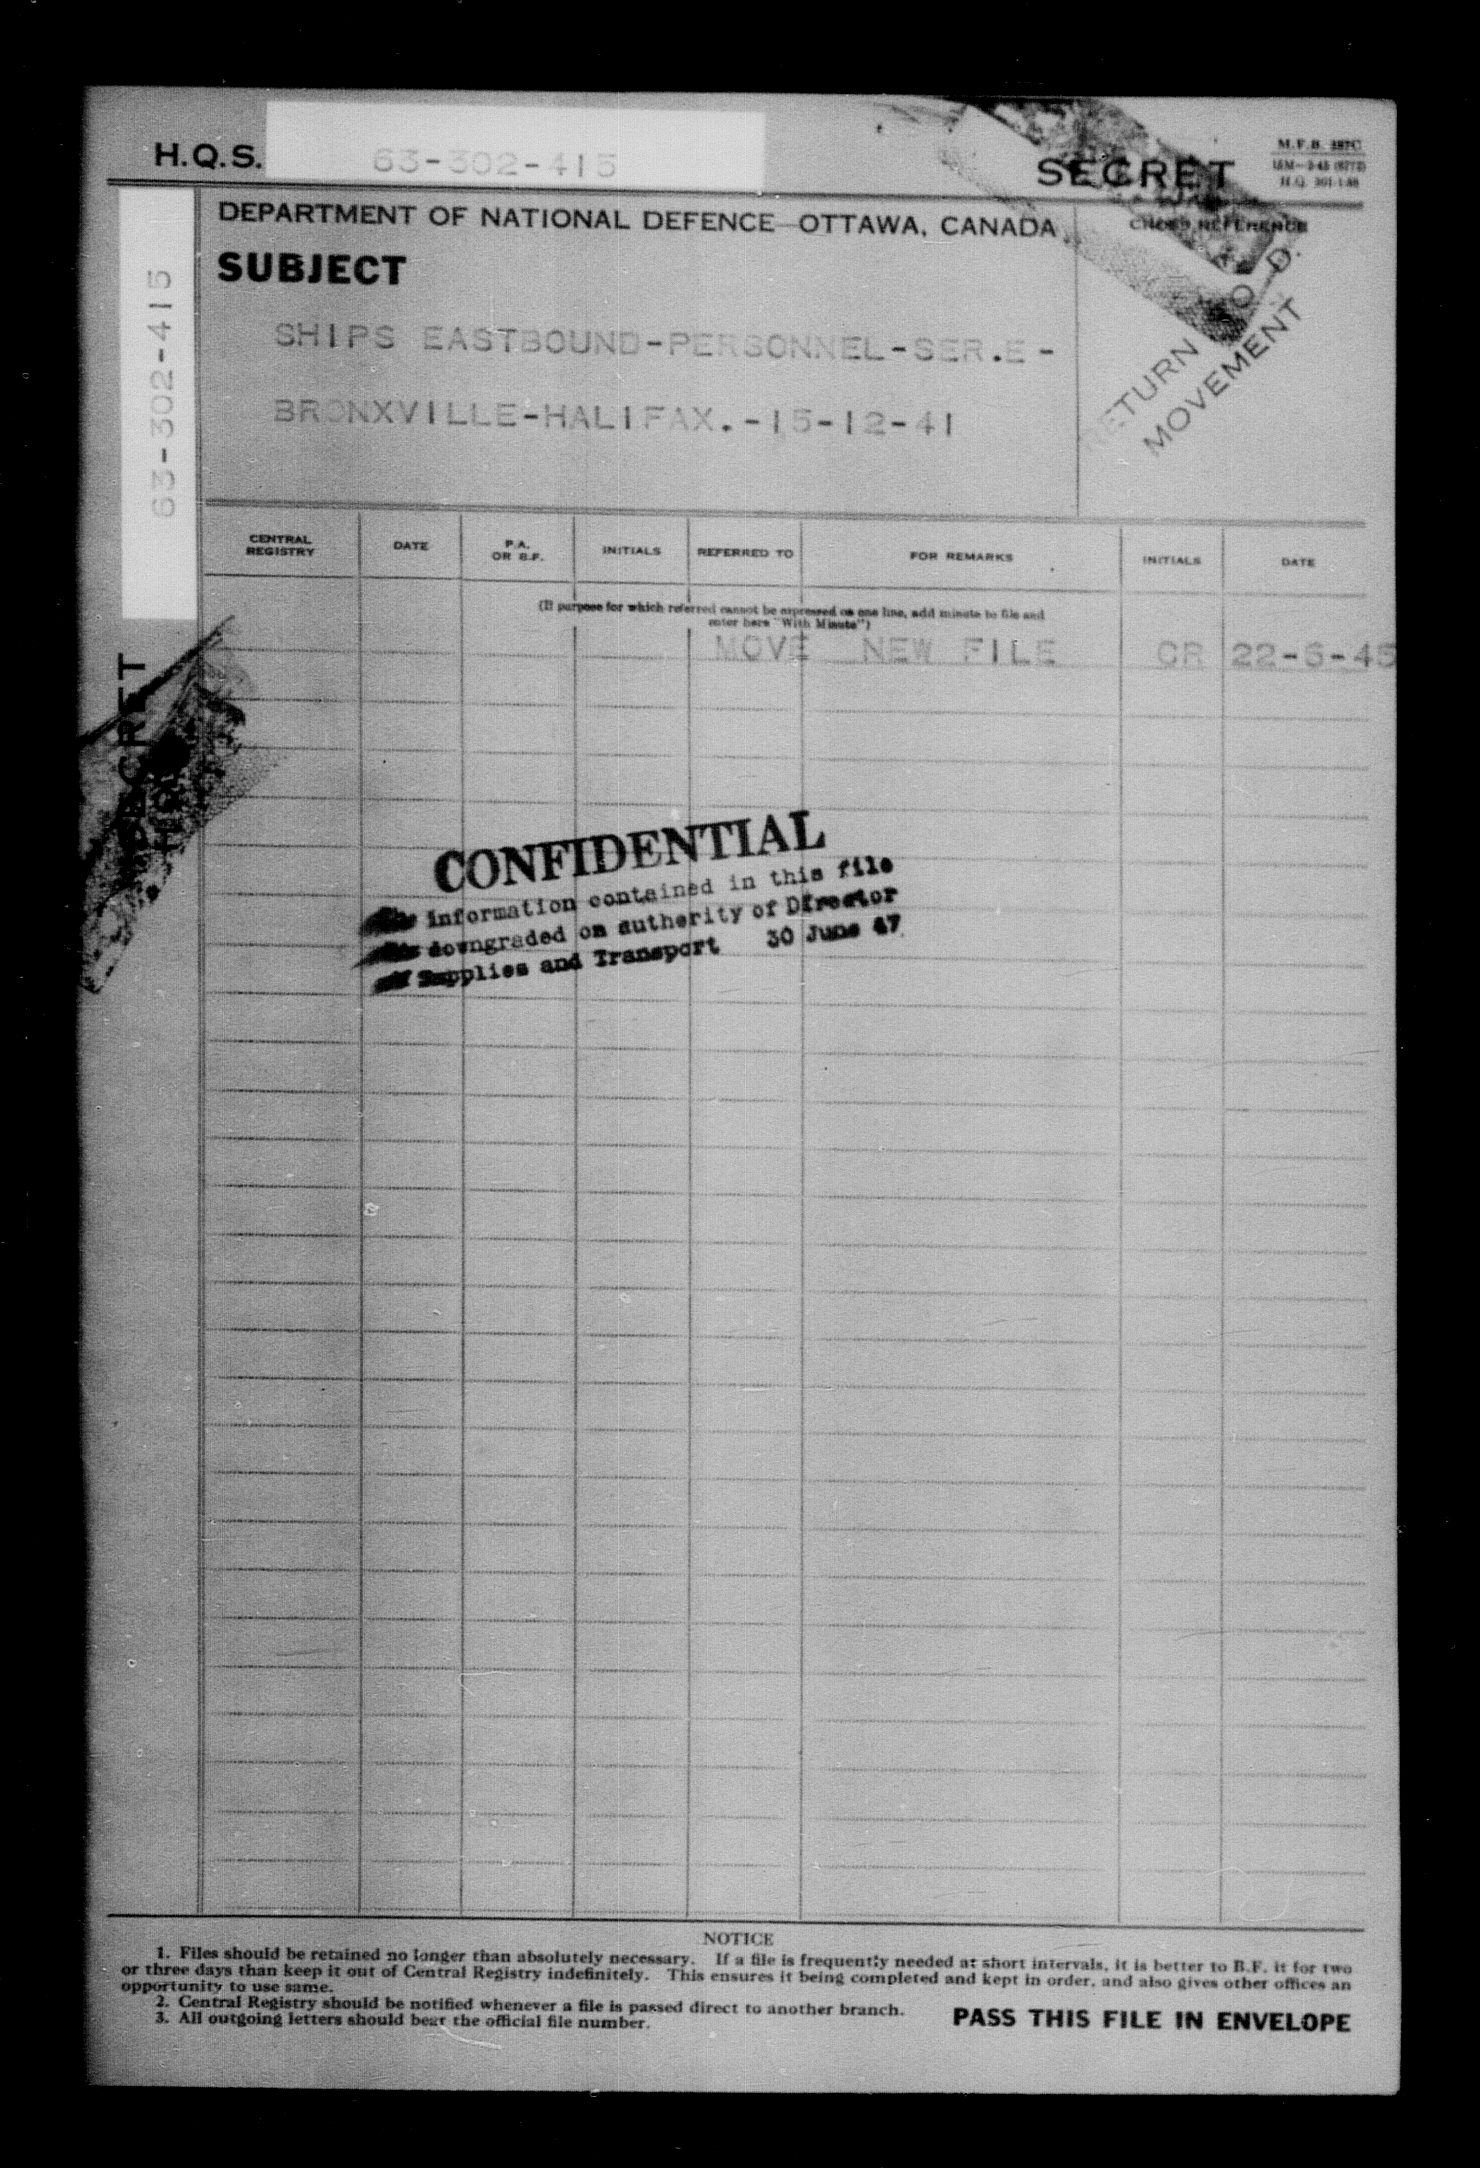 H.Q.S. 63-302-415
SECRET
M.F.B. 387C
15M—3-45 (6772)
H.Q. 301-1-88
DEPARTMENT OF NATIONAL DEFENCE—OTTAWA, CANADA
CROSS REFERENCE
SUBJECT
SHIPS EASTBOUND-PERSONNEL-SER.E-
BRONXVILLE-HALIFAX.-15-12-41
RETURN TO D.
MOVEMENT
63-302-415
SECRET
CENTRAL REGISTRY
DATE
P.A. OR B.F.
INITIALS
REFERRED TO
FOR REMARKS
INITIALS
DATE
(If purpose for which referred cannot be expressed on one line, add minute to file and
enter here "With Minute")
MOVE NEW FILE CR 22-6-45
CONFIDENTIAL
information contained in this file
downgraded on authority of Director
of Supplies and Transport 30 June 47
NOTICE
1. Files should be retained no longer than absolutely necessary. If a file is frequently needed at short intervals, it is better to B.F. it for two
or three days than keep it out of Central Registry indefinitely. This ensures it being completed and kept in order, and also gives other offices an
opportunity to use same.
2. Central Registry should be notified whenever a file is passed direct to another branch.
3. All outgoing letters should bear the official file number.
PASS THIS FILE IN ENVELOPE